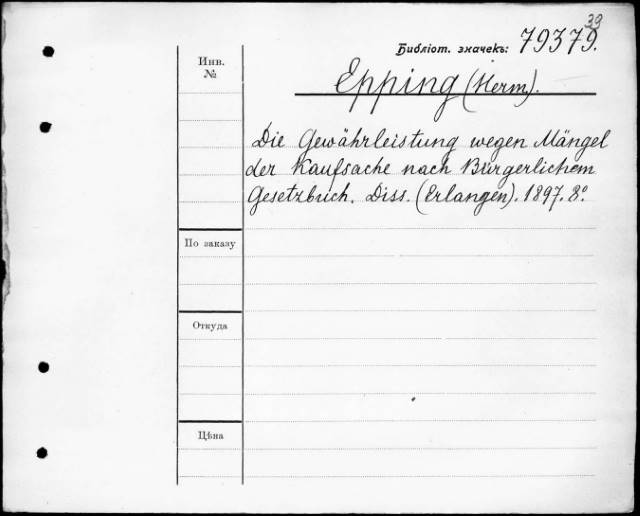 39
Библіот. значекъ: 79379.
Инв.
№
Epping (Herm.).
Die Gewährleistung wegen Mängel
der Kaufsache nach Bürgerlichem
Gesetzbuch. Diss. (Erlangen). 1897. 8°.
По заказу
Откуда
Цѣна